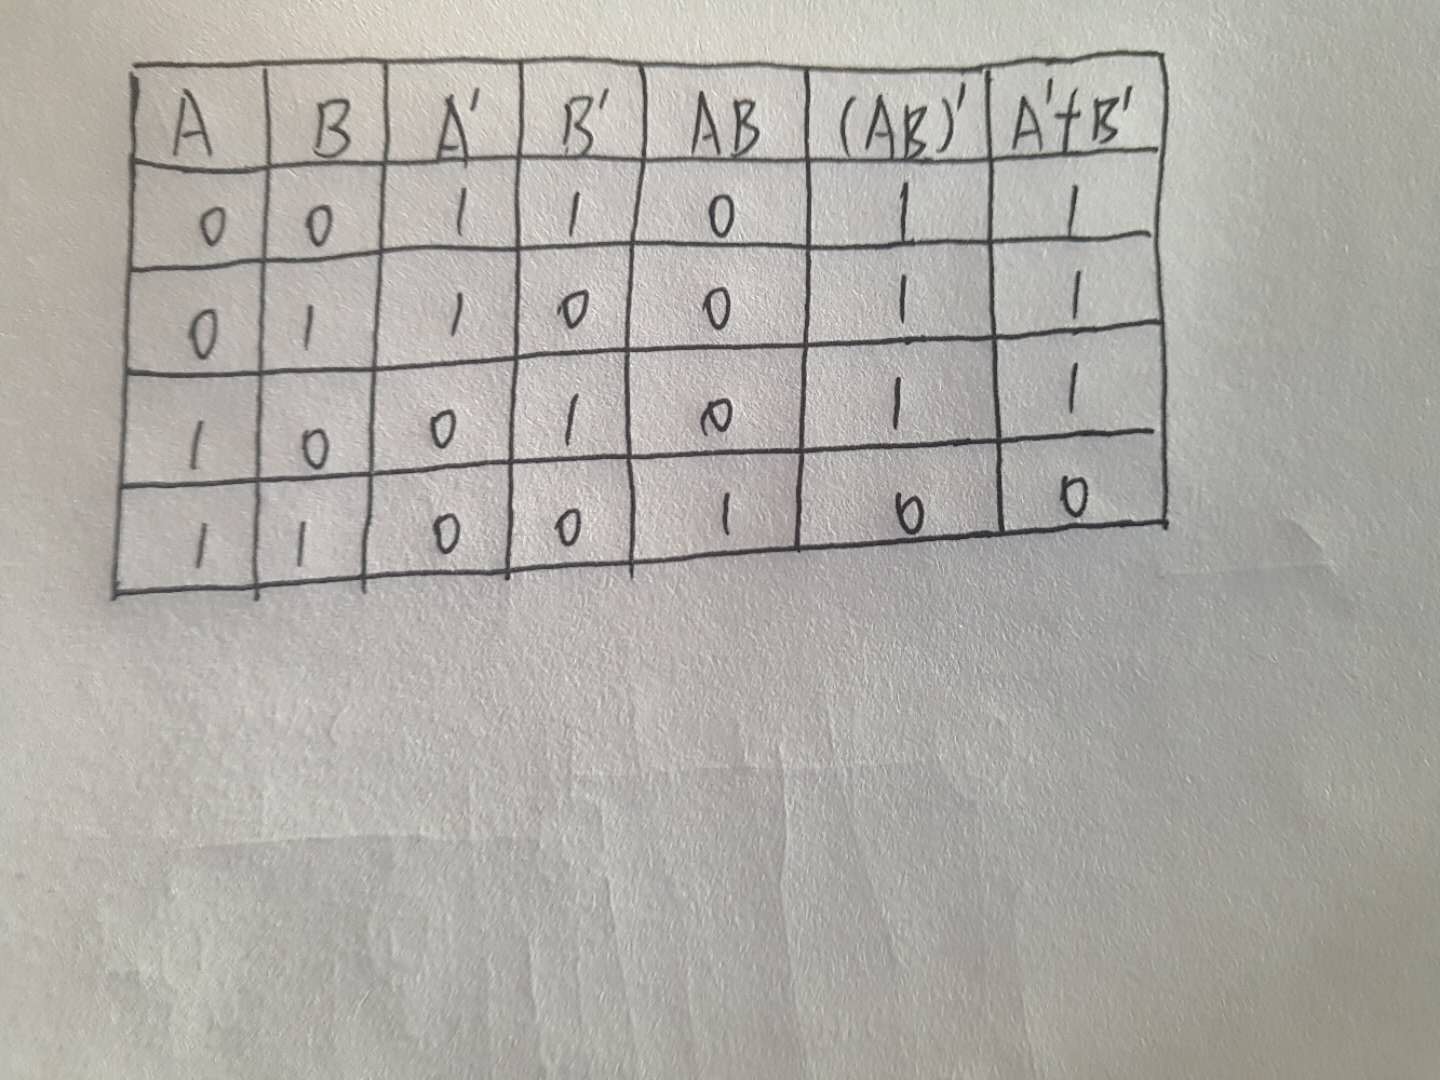 A B A' B' AB (AB)' A'+B'
0 0 1 1 0 1 1
0 1 1 0 0 1 1
1 0 0 1 0 1 1
1 1 0 0 1 0 0